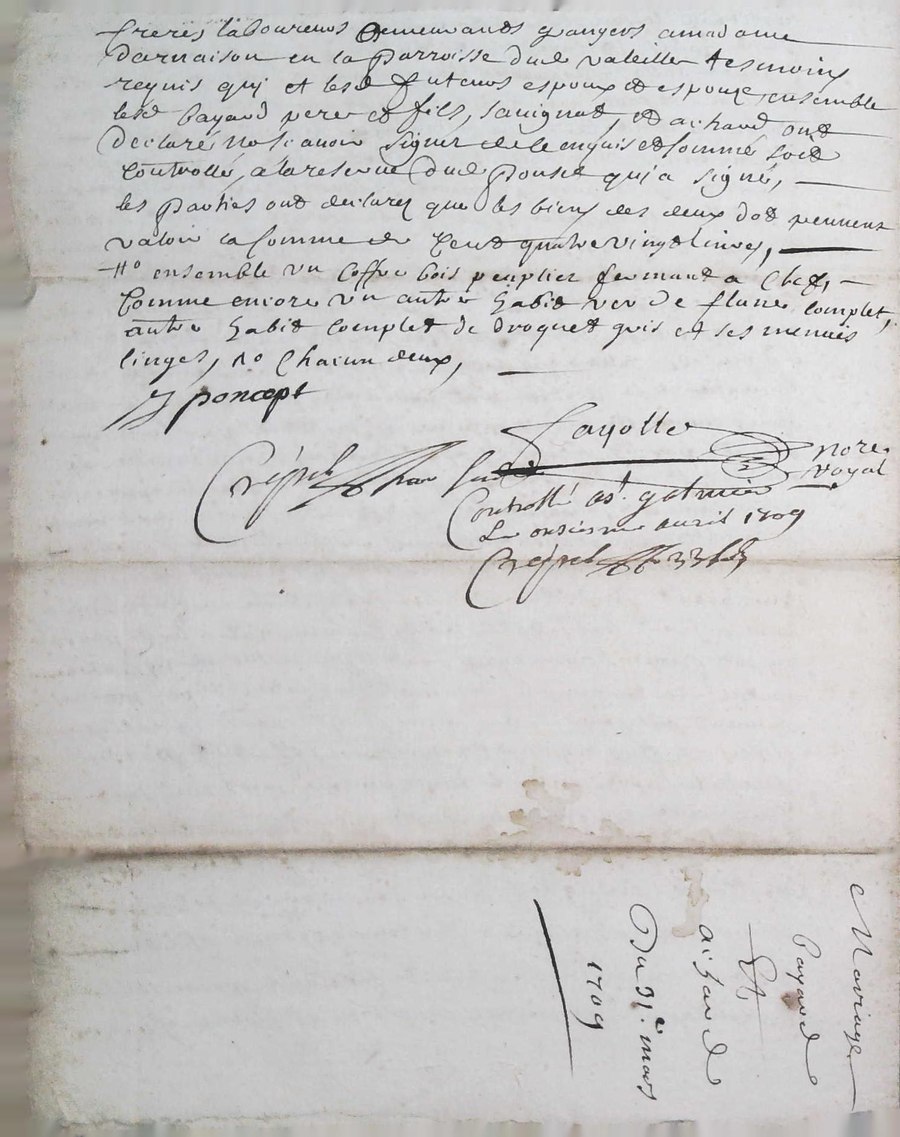 freres laboureurs demeurants grangers a madame
darnaison en la parroisse dud valeille tesmoins
requis qui et lesd futeurs espoux et espouze ensemble
lesd payand pere et fils, sauignat, et achard ont
declaré ne scauoir signer de ce enquis et sommé soit
Controllé, a la reserue dud Poncet qui a signé,
les parties ont declarez que les biens des deux dot peuuent
valoir la somme de Cent quatre vingt liures,
#o ensemble vn Coffre bois peuplier fermant a Clef,
Comme encore vn autre habit de complet,
autre habit complet de droguet gris et ses menuis
linges, No Chacun deux,
J poncept
fayolle
nore
royal
Crépet
Controllé a st galmier
Le onsiesme auril 1709
Crépet
Mariage
payand
Et
achard
Du 31e. mars
1709